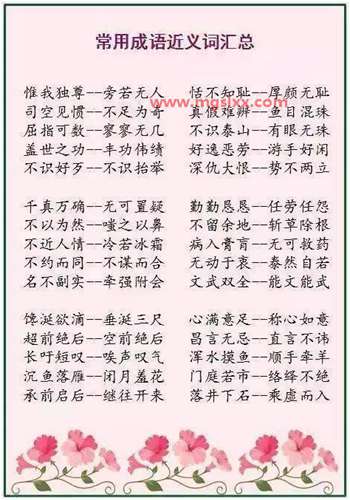 常用成语近义词汇总
www.mgsixx.com
惟我独尊--旁若无人 恬不知耻--厚颜无耻
司空见惯--不足为奇 真假难辨--鱼目混珠
屈指可数--寥寥无几 不识泰山--有眼无珠
盖世之功--丰功伟绩 好逸恶劳--游手好闲
不识好歹--不识抬举 深仇大恨--势不两立
千真万确--无可置疑 勤勤恳恳--任劳任怨
不以为然--嗤之以鼻 不留余地--斩草除根
不近人情--冷若冰霜 病入膏肓--无可救药
不约而同--不谋而合 无动于衷--泰然自若
名不副实--牵强附会 文武双全--能文能武
馋涎欲滴--垂涎三尺 心满意足--称心如意
超前绝后--空前绝后 昌言无忌--直言不讳
长吁短叹--唉声叹气 浑水摸鱼--顺手牵羊
沉鱼落雁--闭月羞花 门庭若市--络绎不绝
承前启后--继往开来 落井下石--乘虚而入